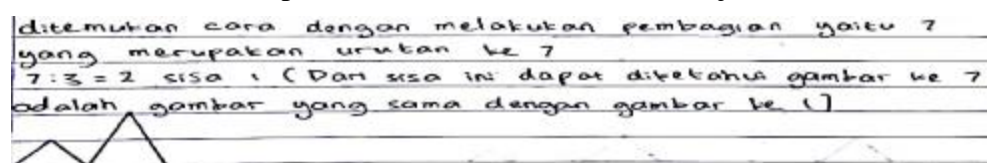 ditemukan cara dengan melakukan pembagian yaitu 7
yang merupakan urutan ke 7
7:3=2 sisa 1 (Dari sisa ini dapat diketahui gambar ke 7
adalah gambar yang sama dengan gambar ke 1)